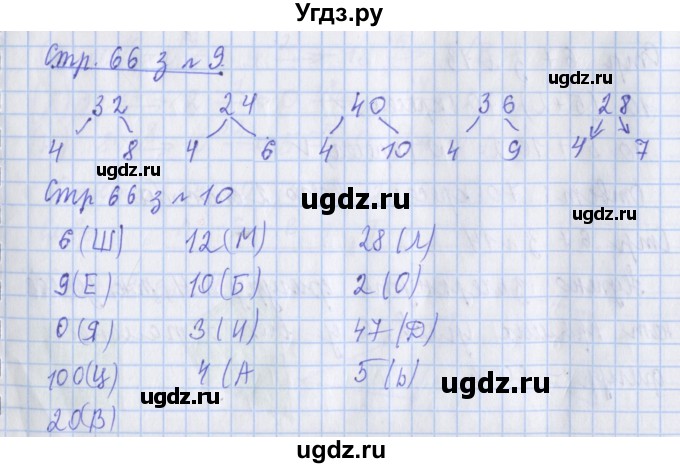 Угдз.ру
Стр. 66 з №9.
ugdz.ru
32 24 40 36 28
4 8 4 6 4 10 4 9 4 7
ugdz.ru ugdz.ru
Стр 66 з №10
ugdz.ru ugdz.ru
6 (Ш) 12 (М) 28 (Л)
9 (Е) 10 (Б) 2 (О)
ugdz.ru
0 (Я) 3 (И) 47 (Д)
100 (Ц) 4 (А 5 (Ь)
ugdz.ru ugdz.ru
20 (В)
ugdz.ru